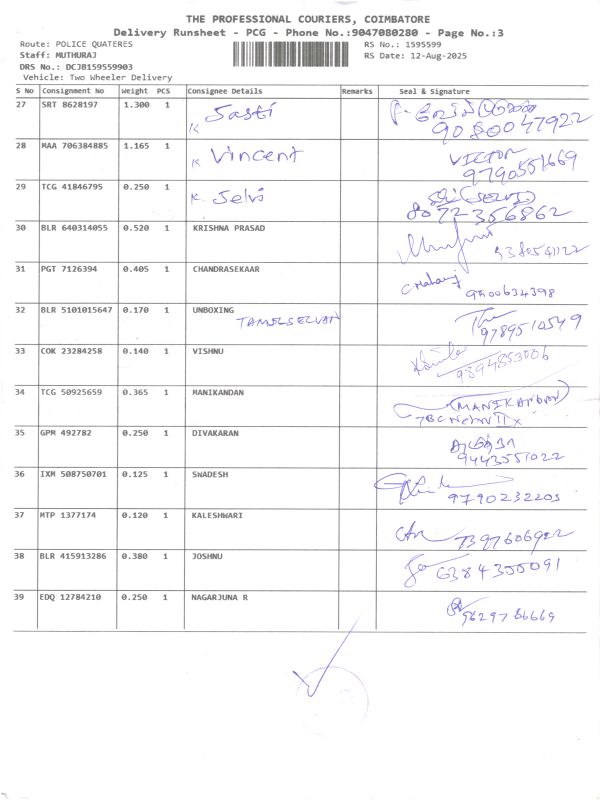 THE PROFESSIONAL COURIERS, COIMBATORE
Delivery Runsheet - PCG - Phone No.:9047080280 - Page No.:3
Route: POLICE QUATERES RS No.: 1595599
Staff: MUTHURAJ RS Date: 12-Aug-2025
DRS No.: DCJB159559903
Vehicle: Two Wheeler Delivery
S No Consignment No Weight PCS Consignee Details Remarks Seal & Signature
27 SRT 8628197 1.300 1 K Sasti
9080047922
28 MAA 706384885 1.165 1 K Vincent VICTOR
9790551669
29 TCG 41846795 0.250 1 K. Selvi (SELVI)
8072356862
30 BLR 640314055 0.520 1 KRISHNA PRASAD
31 PGT 7126394 0.405 1 CHANDRASEKAAR
9500634398
32 BLR 5101015647 0.170 1 UNBOXING
TAMILSELVAN 9789510549
33 COK 23284258 0.140 1 VISHNU
9894853006
34 TCG 50925659 0.365 1 MANIKANDAN (MANIKANDAN)
35 GPM 492782 0.250 1 DIVAKARAN
9443551022
36 IXM 508750701 0.125 1 SWADESH
9790232203
37 MTP 1377174 0.120 1 KALESHWARI
7397606922
38 BLR 415913286 0.380 1 JOSHNU
6384355091
39 EDQ 12784210 0.250 1 NAGARJUNA R
9629786669